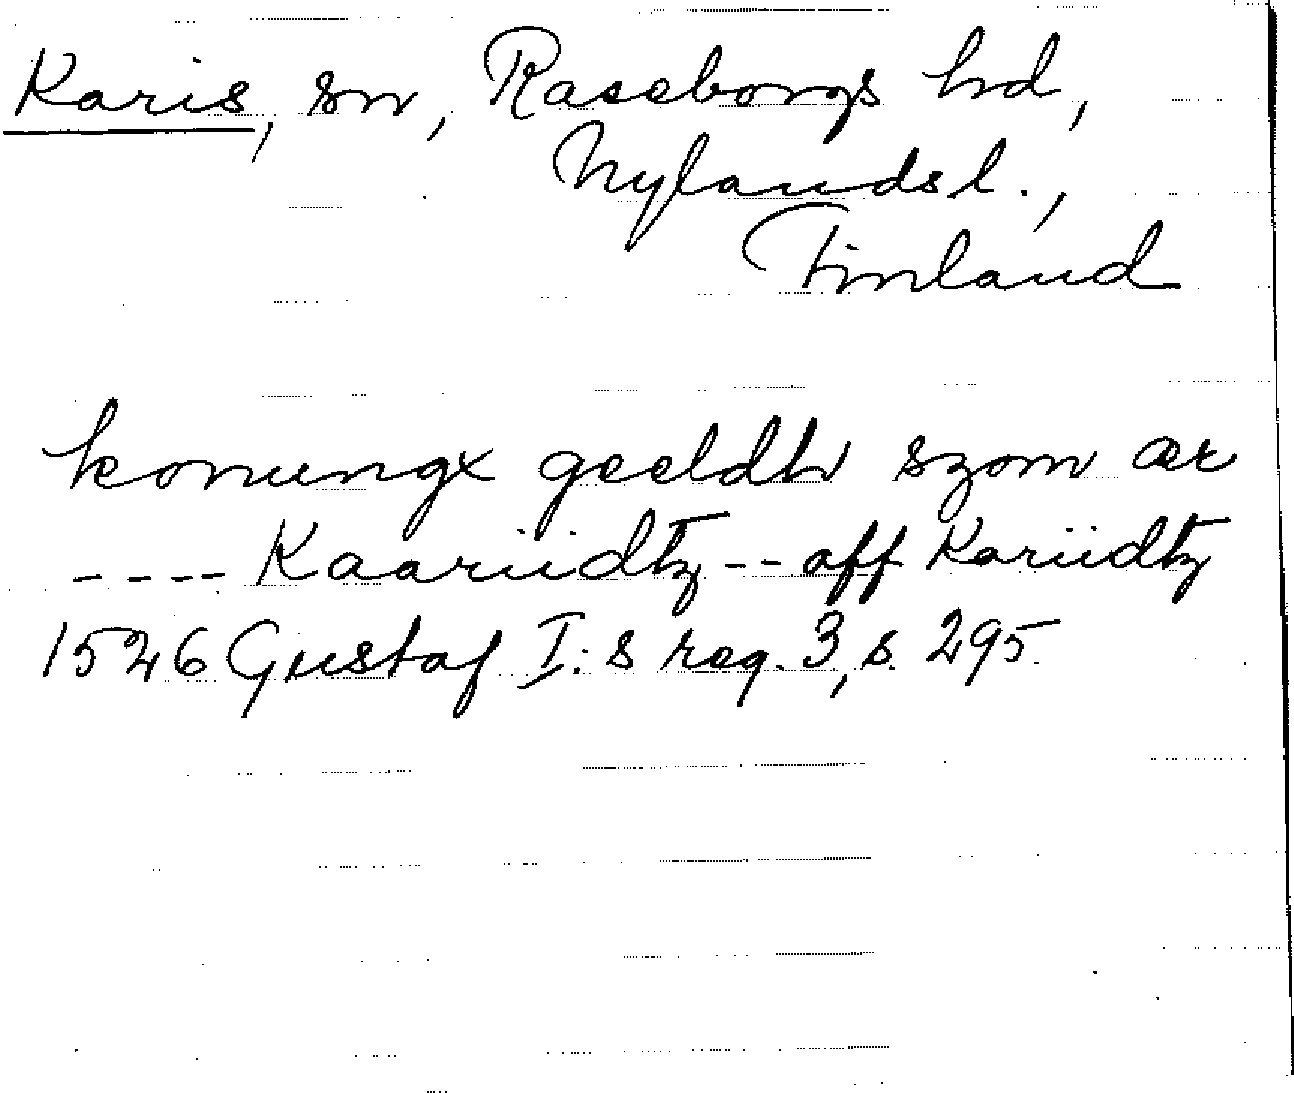 Karis, sn, Raseborgs hd,
Nylands l.,
Finland
konungx geeldh szom ær
---- Kaariidtz -- aff Kariidtz
1526 Gustaf I:s reg. 3, s. 295